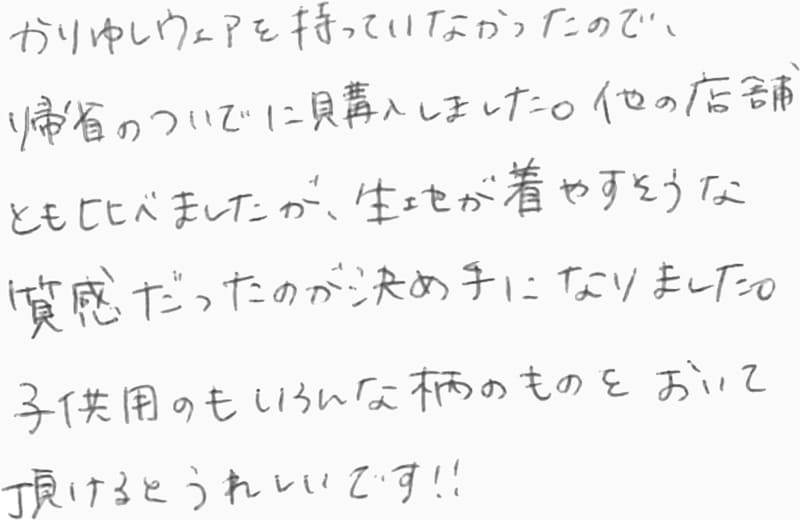 かりゆしウェアを持っていなかったので、
帰省のついでに購入しました。他の店舗
とも比べましたが、生地が着やすそうな
質感だったのが決め手になりました。
子供用のもいろんな柄のものをおいて
頂けるとうれしいです!!